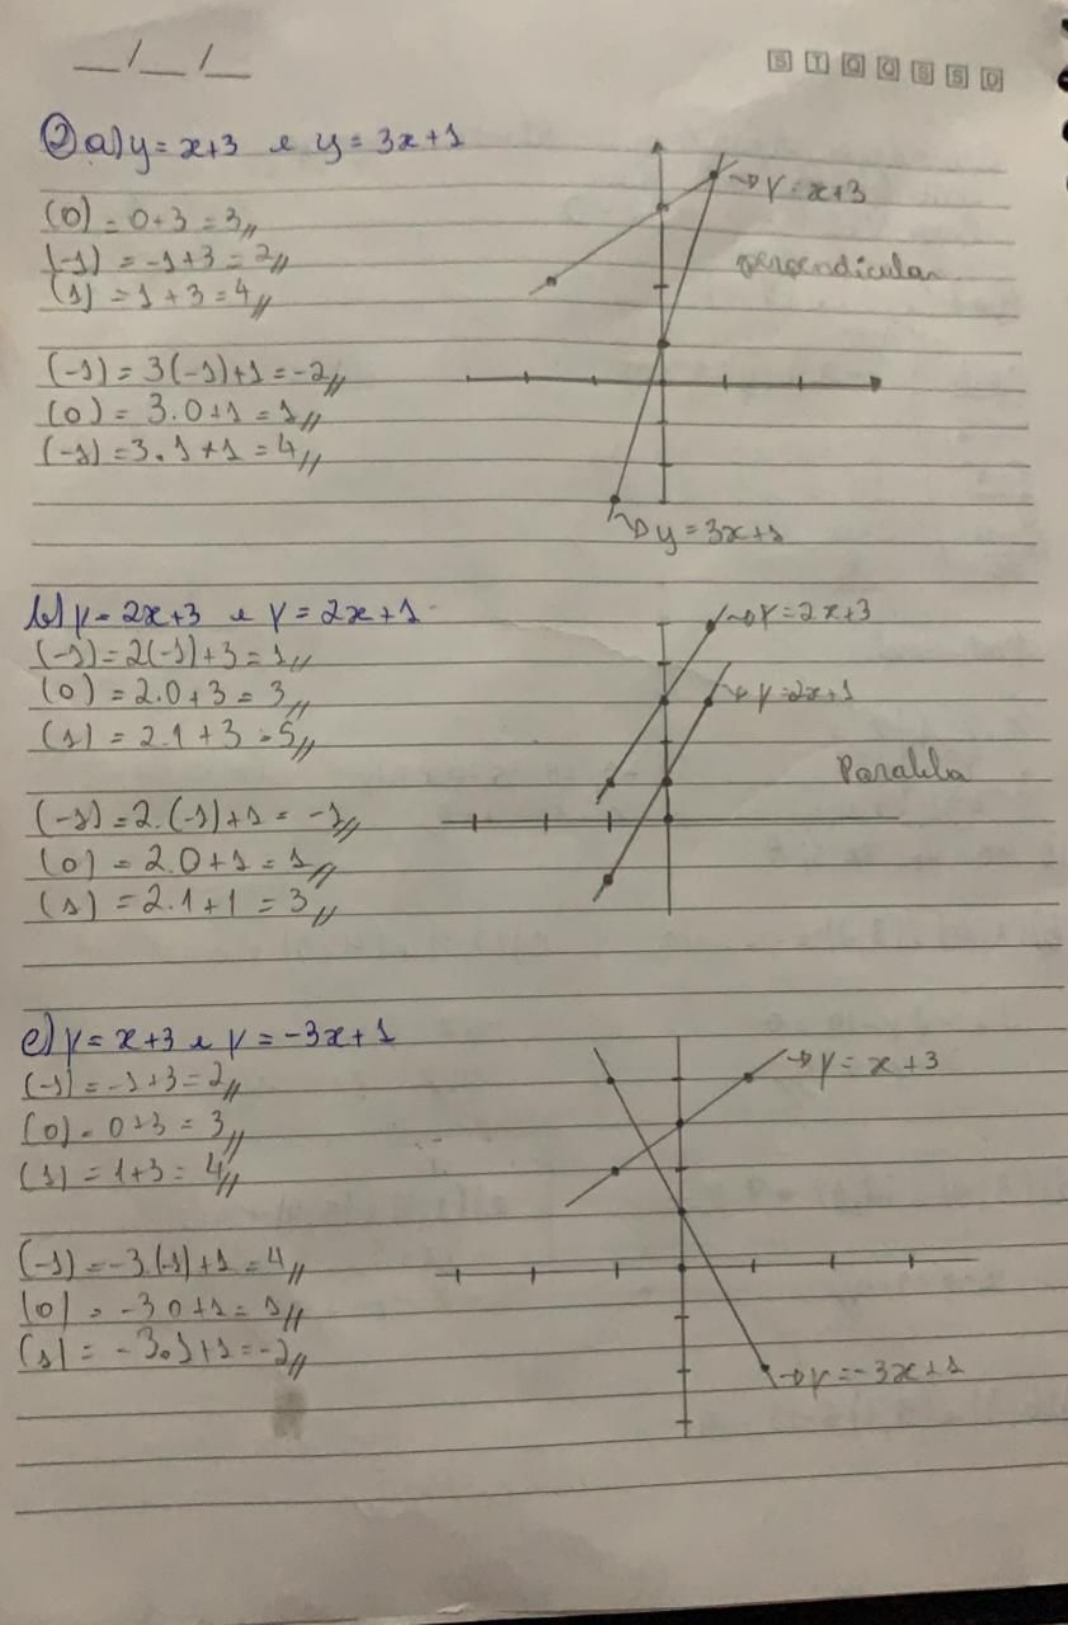 __/__/__
S T Q Q S S D
② a) y = x+3 e y = 3x+1
(0) = 0+3 = 3//
(-1) = -1+3 = 2//
(1) = 1+3 = 4//
(-1) = 3(-1)+1 = -2//
(0) = 3.0+1 = 1//
(-1) = 3.1+1 = 4//
→ y = x+3
perpendicular
→ y = 3x+1
b) y = 2x+3 e y = 2x+1
(-1) = 2(-1)+3 = 1//
(0) = 2.0+3 = 3//
(1) = 2.1+3 = 5//
(-1) = 2.(-1)+1 = -1//
(0) = 2.0+1 = 1//
(1) = 2.1+1 = 3//
→ y = 2x+3
→ y = 2x+1
c) y = x+3 e y = -3x+1
(-1) = -1+3 = 2//
(0) = 0+3 = 3//
(1) = 1+3 = 4//
(-1) = -3.(-1)+1 = 4//
(0) = -3.0+1 = 1//
(1) = -3.1+1 = -2//
→ y = x+3
→ y = -3x+1